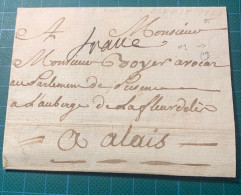 A Monsieur
franc
Monsieur Boyer avocat
au Parlement de
a l'auberge de la fleurdelis
a alais